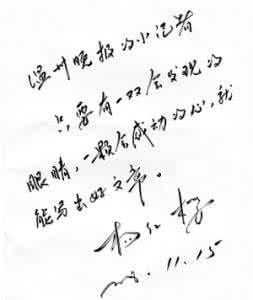 温州晚报的小记者
只要有一双会发现的
眼睛，一颗会感动的心，就
能写出好文章。
杨红樱
2008.11.15